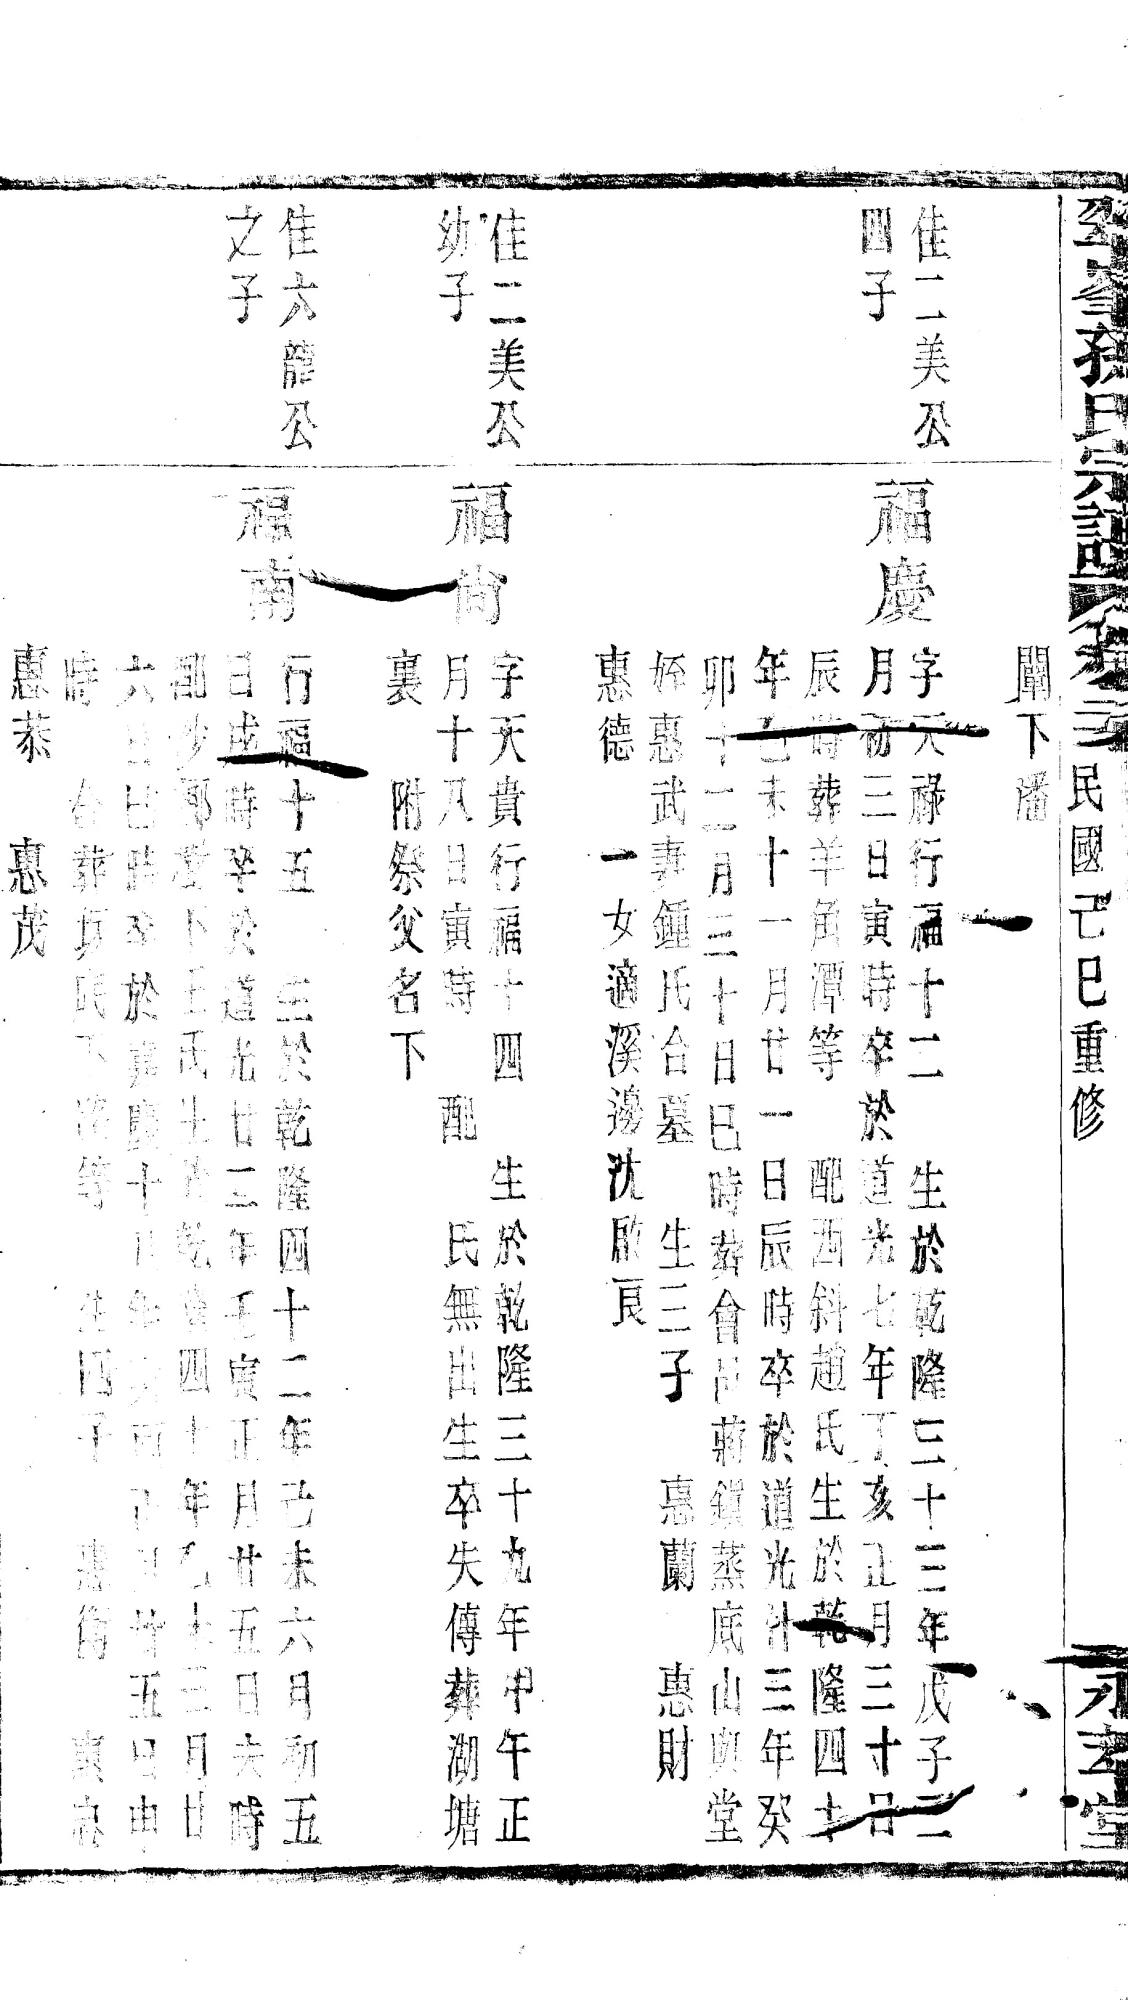 孫氏宗譜卷
民國己巳重修
永
堂
闈下潘
佳二美公
四子
福慶
字天祿行福十二 生於乾隆三十三年戊子二
月初三日寅時卒於道光七年丁亥正月三十日
辰時葬羊角潭等 配西斜趙氏生於乾隆四十
年乙未十一月廿一日辰時卒於道光廿三年癸
卯十二月三十日巳時葬會邑蔣鎮蒸底山與堂
姪惠武妻鍾氏合墓 生三子 惠蘭 惠財
惠德 一女適溪邊沈啟良
佳二美公
幼子
福尙
字天貴行福十四 生於乾隆三十九年甲午正
月十八日寅時 配 氏無出生卒失傳葬湖塘
裏 附祭父名下
佳六龍公
之子
福南
行福十五 生於乾隆四十二年己未六月初五
日戌時卒於道光廿二年壬寅正月廿五日亥時
氏生於乾隆四十年乙未三月廿
六日巳時卒於嘉慶十 年 正月廿五日申
時 合葬 下 等 生四子 惠
惠恭 惠茂